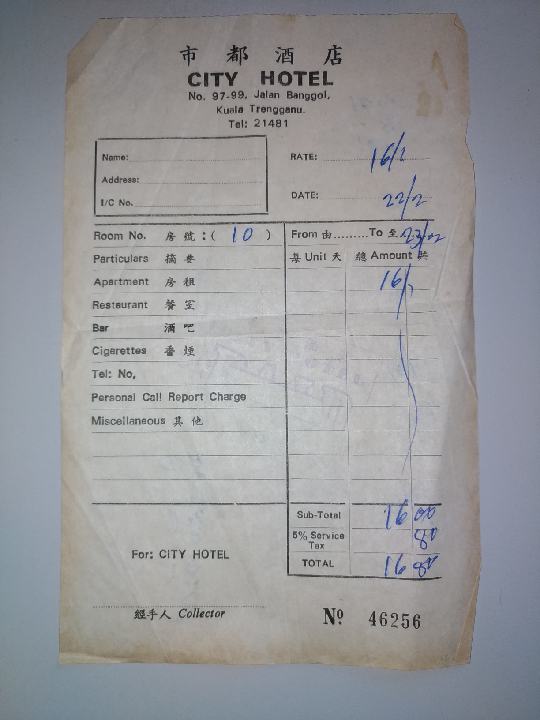 市都酒店
CITY HOTEL
No. 97-99, Jalan Banggol,
Kuala Trengganu.
Tel: 21481
Name:
Address:
I/C No.
RATE: 16/
DATE: 22/2
Room No. 房號:( 10 )
From 由.........To 至 23/2
Particulars 摘要
每 Unit 天 總 Amount 共
Apartment 房租 16/
Restaurant 餐室
Bar 酒吧
Cigarettes 香煙
Tel: No,
Personal Call Report Charge
Miscellaneous 其他
Sub-Total 16 00
5% Service Tax 80
TOTAL 16 80
For: CITY HOTEL
經手人 Collector
Nº 46256